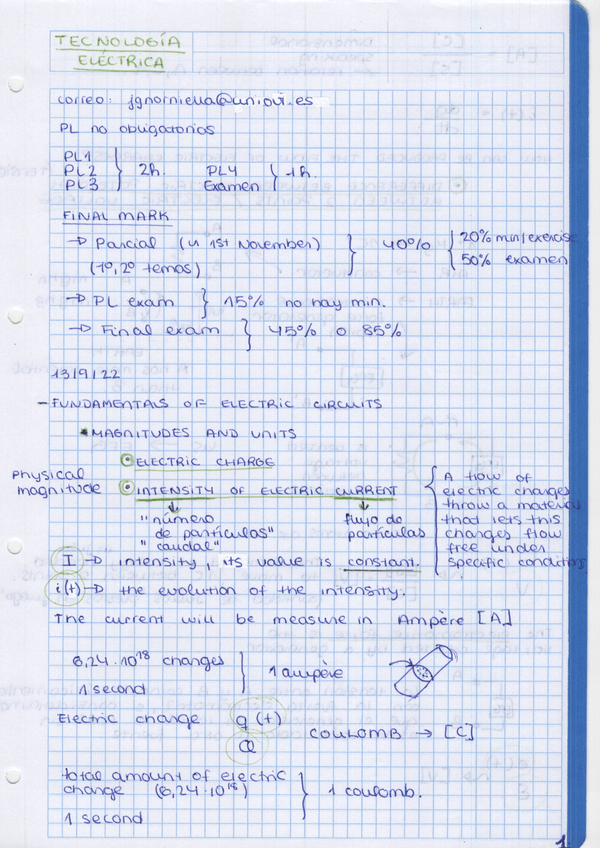 TECNOLOGÍA
ELÉCTRICA
correo: jgnorniella@uniovi.es
PL no obligatorios
PL1
PL2 2h. PL4 1h.
PL3 Examen
FINAL MARK
→ Parcial (4 1st November) 40% 20% min/exercise
(1º, 2º temas) 50% examen
→ PL exam 15% no hay min.
→ Final exam 45% o 85%
13/9/22
- FUNDAMENTALS OF ELECTRIC CIRCUITS
MAGNITUDES AND UNITS
ELECTRIC CHARGE
physical magnitude
INTENSITY OF ELECTRIC CURRENT
"número de partículas"
"caudal"
flujo de partículas
A flow of
electric charges
throw a material
that lets this
charges flow
free under
specific condition
I → intensity, its value is constant.
i(t) → the evolution of the intensity.
The current will be measure in Ampère [A]
6,24·10¹⁸ charges
1 second
1 ampère
Electric charge q(t)
Q
COULOMB → [C]
total amount of electric
charge (6,24·10¹⁸) 1 coulomb.
1 second
1